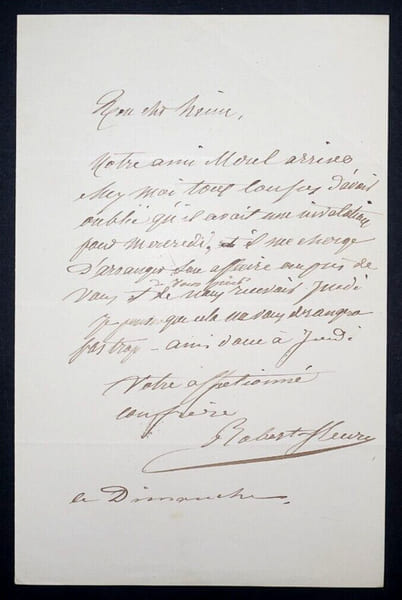 Mon cher
Notre ami Morel arrive
chez moi tout confus d'avoir
oublié qu'il avait une invitation
pour mercredi, il me charge
d'arranger son affaire auprès de
vous et de recevoir jeudi
Je pense que cela ne vous dérangera
pas trop – ainsi donc à Jeudi
Votre affectionné
confrère
Robert-Fleury
ce Dimanche